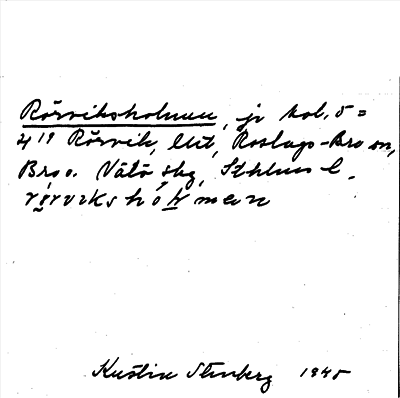 Rörviksholmen, jr kol. 5 =
4 19 Rörvik, lht, Roslags-Bro sn,
Bro o. Vätö skg, Sthlms l.
rörvikshólmen
Kerstin Stenberg 1945